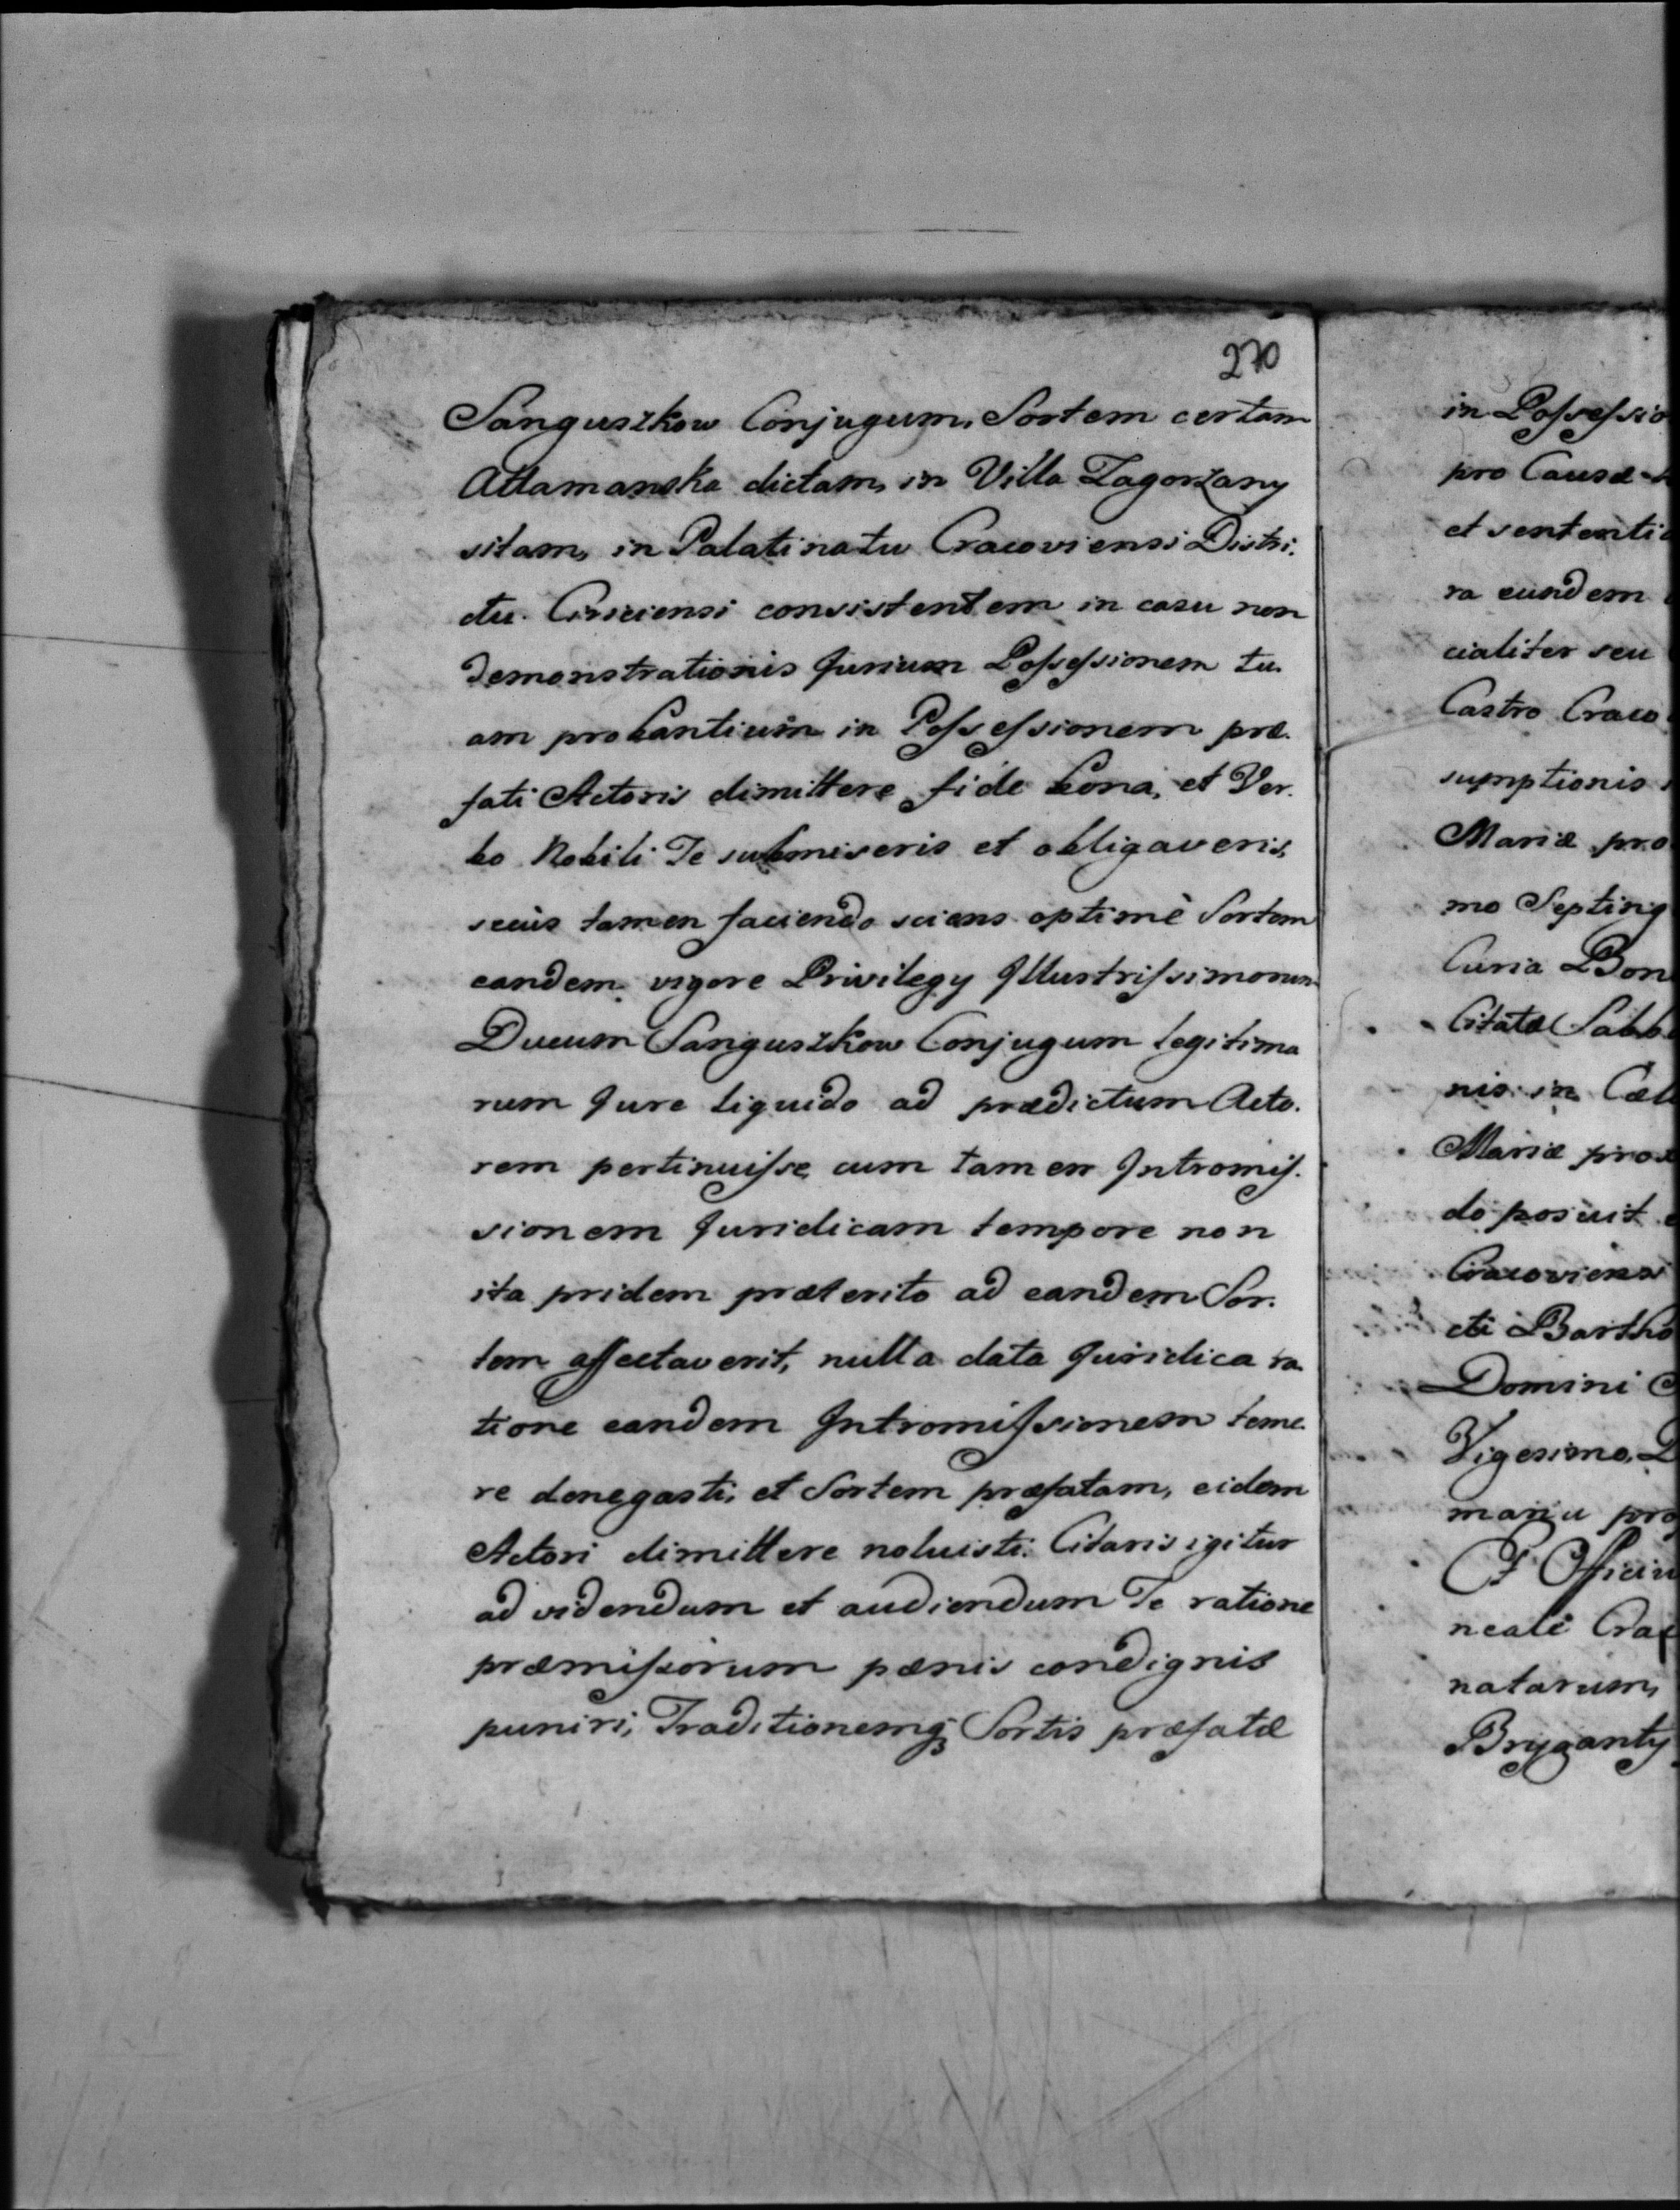 270
Sanguszkow Conjugum, Sortem certam
Attamanska dictam, in Villa Zagorzany
sitam, in Palatinatu Cracoviensi Distri.
ctu. Crisiciensi consistentem in casu non
demonstrationis Jurium Possessionem tu
am probantium in Possessionem præ.
fati Actoris dimittere fide bona, et Ver.
bo Nobili Te submiseris et obligaveris,
secùs tamen faciendo sciens optimè Sortem
eandem vigore Privilegy Illustrissimorum
Ducum Sanguszkow Conjugum legitima
rum Jure liquido ad prædictum Acto.
rem pertinuisse, cum tamen Intromis.
sionem Juridicam tempore non
ita pridem præterito ad eandem Sor.
tem affectaverit, nulla data Juridica ra
tione eandem Intromissionem teme.
re denegasti, et Sortem præfatam, eidem
Actori dimittere noluisti. Citaris igitur
ad videndum et audiendum Te ratione
præmissorum pænis condignis
puniri, Traditionemq3 Sortis præfatæ
in Possessio
pro Causæ
et sententi
ra eundem
cialiter seu
Castro Craco
sumptionis
Mariæ pro
mo Septing
Curia Bon
Citatæ Sabb
nis in Cæl
Mariæ prox
do posuit
Cracoviensi
cti Bartho
Domini
Vigesimo,
mariu pro
Officiu
neali Cra
natarum,
Bryganty